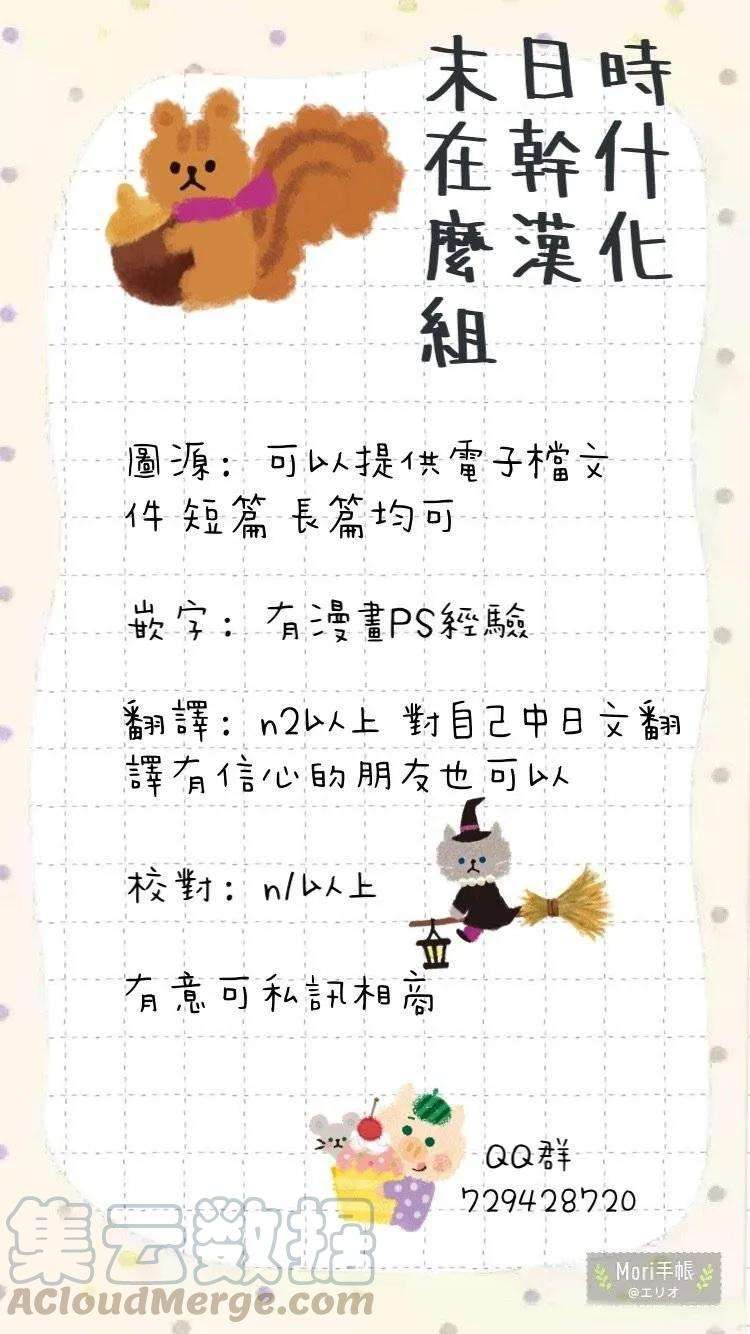 末日時
在幹什
麼漢化
組
圖源：可以提供電子檔文
件 短篇 長篇均可
嵌字：有漫畫PS經驗
翻譯：n2以上 對自己中日文翻
譯有信心的朋友也可以
校對：n1以上
有意可私訊相商
QQ群
729428720
集云数据
ACloudMerge.com
Mori手帳
@エリオ